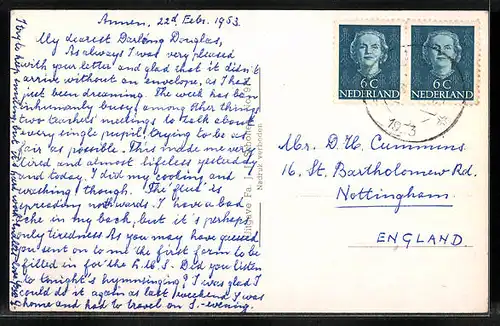 Annen, 22d Febr. 1953.
My dearest Darling Douglas,
As always I was very pleased
with your letter, and glad that it didn't
arrive without an envelope, as I had
just been dreaming. The week has been
inhumanly busy, among other things
two teachers' meetings to talk about
every single pupil, trying to be as
fair as possible. This made me very
tired and almost lifeless yesterday
and today. I did my cooking and
washing though. The 'flue' is
spreading northwards. I have a bad
ache in my back, but it's perhaps
only tiredness. As you may have guessed
you sent on to me the first form to be
filled in for the L.M.S. Did you listen
to tonight's hymnsinging? I was glad I
could do it again as last weekend I was
home and had to travel on S.-evening.
I try to keep smiling, but it's hard work
Nadruk verboden
6 C
NEDERLAND
6 C
NEDERLAND
Mr. D. H. Cummins
16, St. Bartholomew Rd.
Nottingham
ENGLAND.